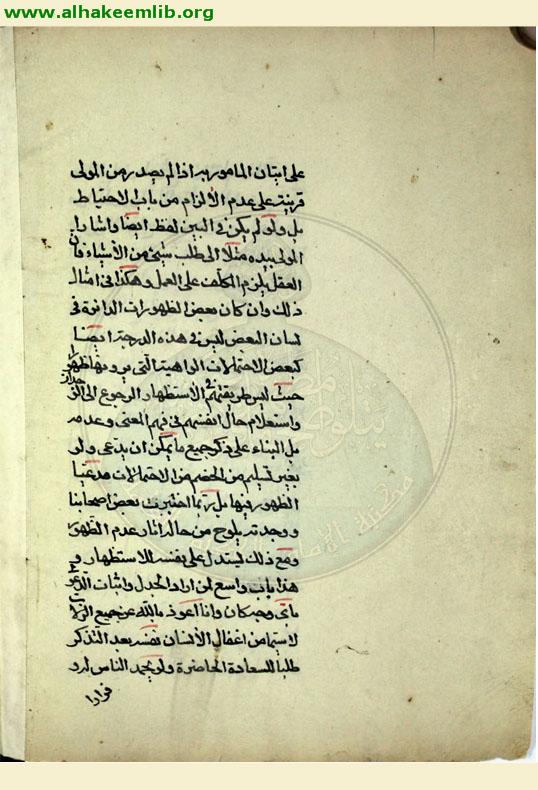 www.alhakeemlib.org
على اتيان المامور به اذا لم يصدر من المولى
قرينة على عدم الالزام من باب الاحتياط
بل ولو لم يكن في البين لفظ ايضا واشار
المولى بيده مثلا الى طلب شيئ من الأشياء فان
العقل يلزم المكلف على العمل وهكذا في امثال
ذلك وان كان بعض الظهورات الدائرة في
لسان البعض ليس في هذه الدرجة ايضا
كبعض الاحتمالات الواهية التي يرونها ظهورا
حيث ليس طريقتهم في الأستظهار الرجوع الى
واستعلام حال انفسهم في فهم المعنى وعدمه
بل البناء على ذكر جميع ما يمكن ان يدعى ولو
بغير تسليم من الخصم من الاحتمالات مدعيا
الظهور فيها بل ربما اختبرت بعض اصحابنا
ووجدته يلوح من حاله اثار عدم الظهور
ومع ذلك ليستدل على نفسه للاستظهار و
هذا باب واسع لمن اراد الجدل واثبات الدعوى
باي وجه كان وانا اعوذ بالله عن جميع الزلات
لا سيما من اغفال الأنسان نفسه بعد التذكر
طلبا للسعادة الحاضرة ولو بحمد الناس له و